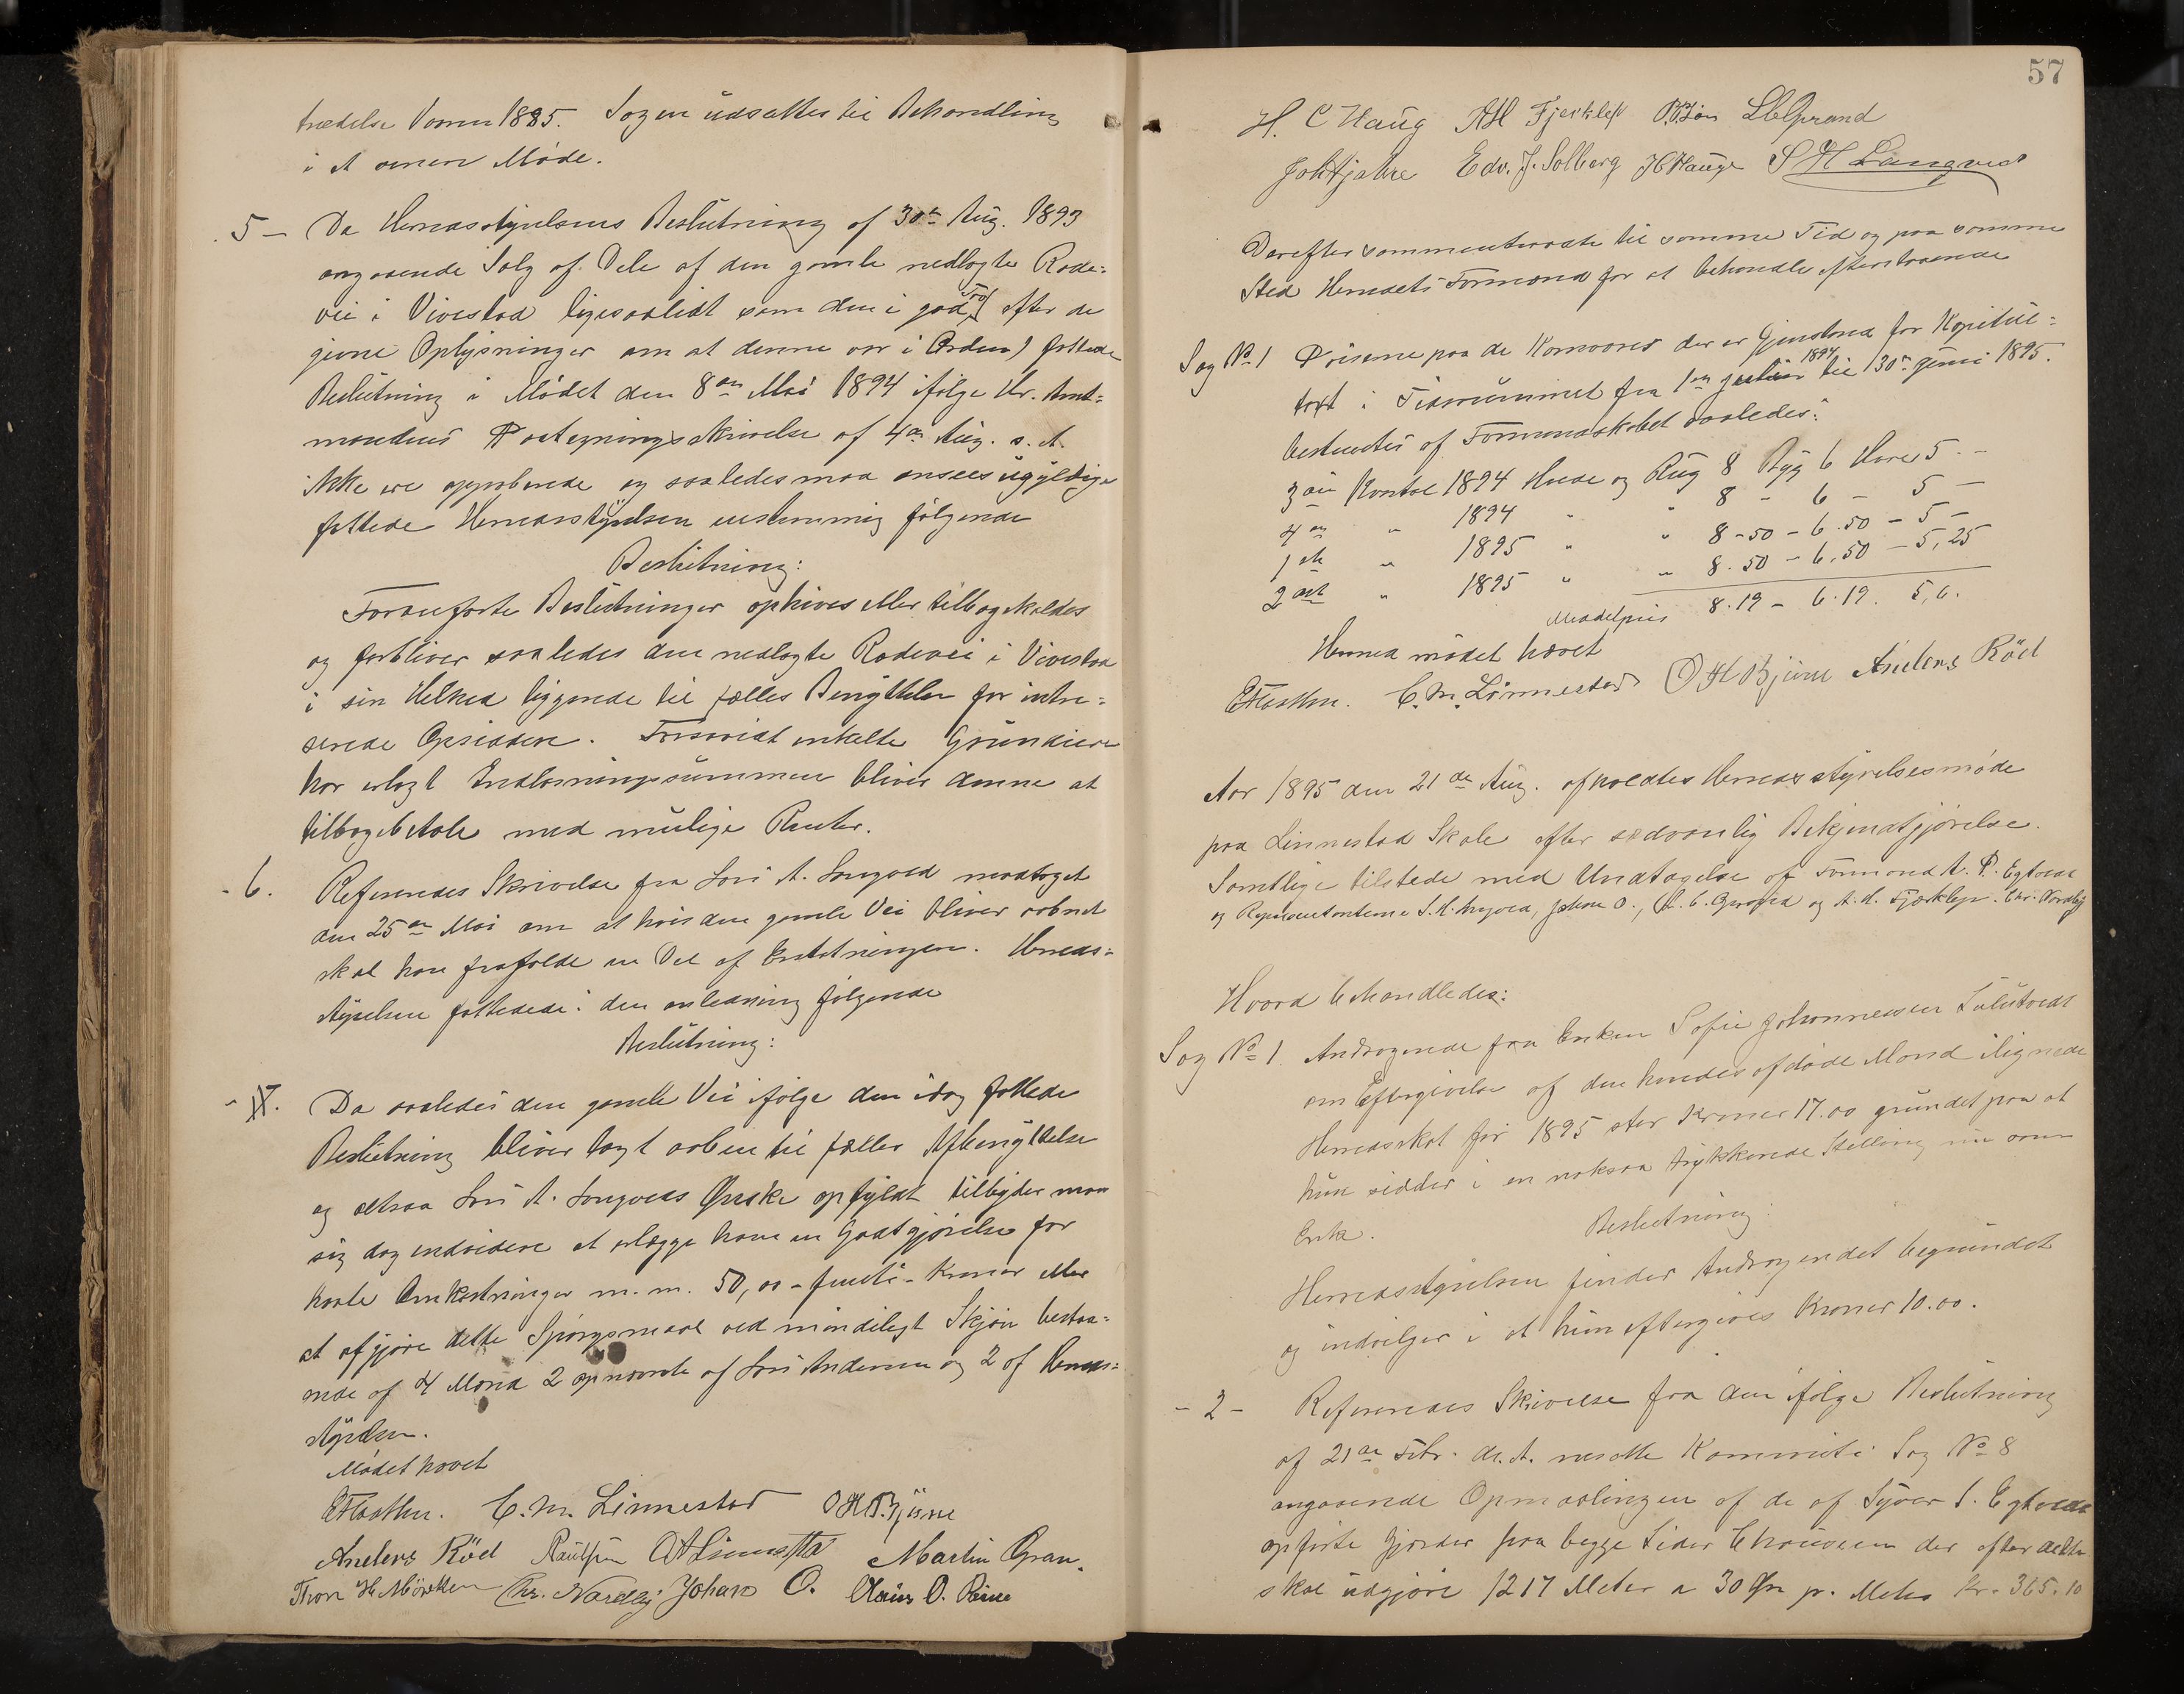 trædelse Vaaren 1885. Sagen udsættes til Behandling
i et annet Møde.
5 - Da Herredsstyrelsens Beslutning af 30te Aug. 1893
angaaende Salg af Dele af den gamle nedlagte Rode-
vei i Vivestad ligesaalidt som den i god Tro (efter de
givne Oplysninger om at denne var i Orden) fattede
Beslutning i Mødet den 8de Mai 1894 ifølge Hr. Amt-
mandens Paategningsskrivelse af 4de Aug. s. A.
ikke ere approberede og saaledes maa ansees ugyldige
fattede Herredsstyrelsen eenstemmig følgende
Beslutning:
Foranførte Beslutninger ophæves eller tilbagekaldes
og forbliver saaledes den nedlagte Rodevei i Vivestad
i sin Helhed liggende til fælles Benyttelse for intre-
serede Opsiddere. Forsaavidt enkelte Grundeiere
har erlagt Indløsningssummen bliver denne at
tilbagebetale med mulige Renter.
- 6. Refereredes Skrivelse fra Lars A. Langved modtaget
den 25de Mai om at hvis den gamle Vei bliver aabnet
skal han frafalde en Del af Erstatningen. Herreds-
styrelsen fattede i den anledning følgende
Beslutning:
Da saaledes den gamle Vei ifølge den idag fattede
Beslutning bliver lagt aaben til fælles Afbenyttelse
og altsaa Lars A. Langveds Ønske opfyldt tilbyder man
sig dog endvidere at erlægge ham en Godtgjørelse for
havte Omkostninger m. m. 50,00 - femti - Kroner eller
at afgjøre dette Spørgsmaal ved mindeligt Skjøn bestaa-
ende af 4 Mænd 2 opnævnte af Lars Andersen og 2 af Herreds-
styrelsen.
Mødet hævet
C. M. Linnestad O H Bjüne
Anders Röd Martin Gran.
Thor H Mörken Chr. Nordby Johan O.
57
H. C Haug A H Fjerklep
Edv. J. Solberg H Hauge S H Langved
Derefter sammentraadte til samme Tid og paa samme
Sted Herredets Formænd for at behandle efterstaaende
Sag No 1 Priserne paa de Kornvarer der er Gjenstand for Kapitels-
taxt i Tidsrummet fra 1ste juli 1894 til 30te juni 1895.
bestemtes af Formandskabet saaledes:
3die Kvartal 1894 Hvede og Rug 8 Byg 6 Havre 5 -
4de " 1894 " " 8 - 6 - 5 -
1ste " 1895 " " 8-50 - 6.50 - 5 -
2det " 1895 " " 8.50 - 6.50 - 5,25
Middelpris 8.19 - 6.19. 5,6.
Hermed mødet hævet
C. M. Linnestad O H Bjüne Anders Röd
Aar 1895 den 21de Aug. afholdtes Herredsstyrelsesmøde
paa Linnestad Skole efter sedvanlig Bekjendtgjørelse.
Samtlige tilstede med Undtagelse af Formand A. P. Egtvedt
og Repræsentanterne S. H. Langved, Johan O., L. C. Gprand og A. H. Fjærklep. Chr. Nordby
Hvord behandledes:
Sag No 1. Andragende fra Enken Sofie Johannessen
om Eftergivelse af den hendes afdøde Mand ilignede
Herredsskat for 1895 stor Kroner 17.00 grundet paa at
hun sidder i en noksaa trykkende Stilling nu som
Enke. Beslutning:
Herredsstyrelsen finder Andragendet begrundet
og indvilger i at hun eftergives Kroner 10.00.
- 2 - Refereredes Skrivelse fra den ifølge Beslutning
af 21de Febr. d. A. nedsatte Kommite i Sag No 8
angaaende Opmaalingen af de af Syver S. Egtvedt
opførte Gjærder paa begge Sider Chauseen der efter dette
skal udgjøre 1217 Meter a 30 Øre p. Meter Kr. 365.10